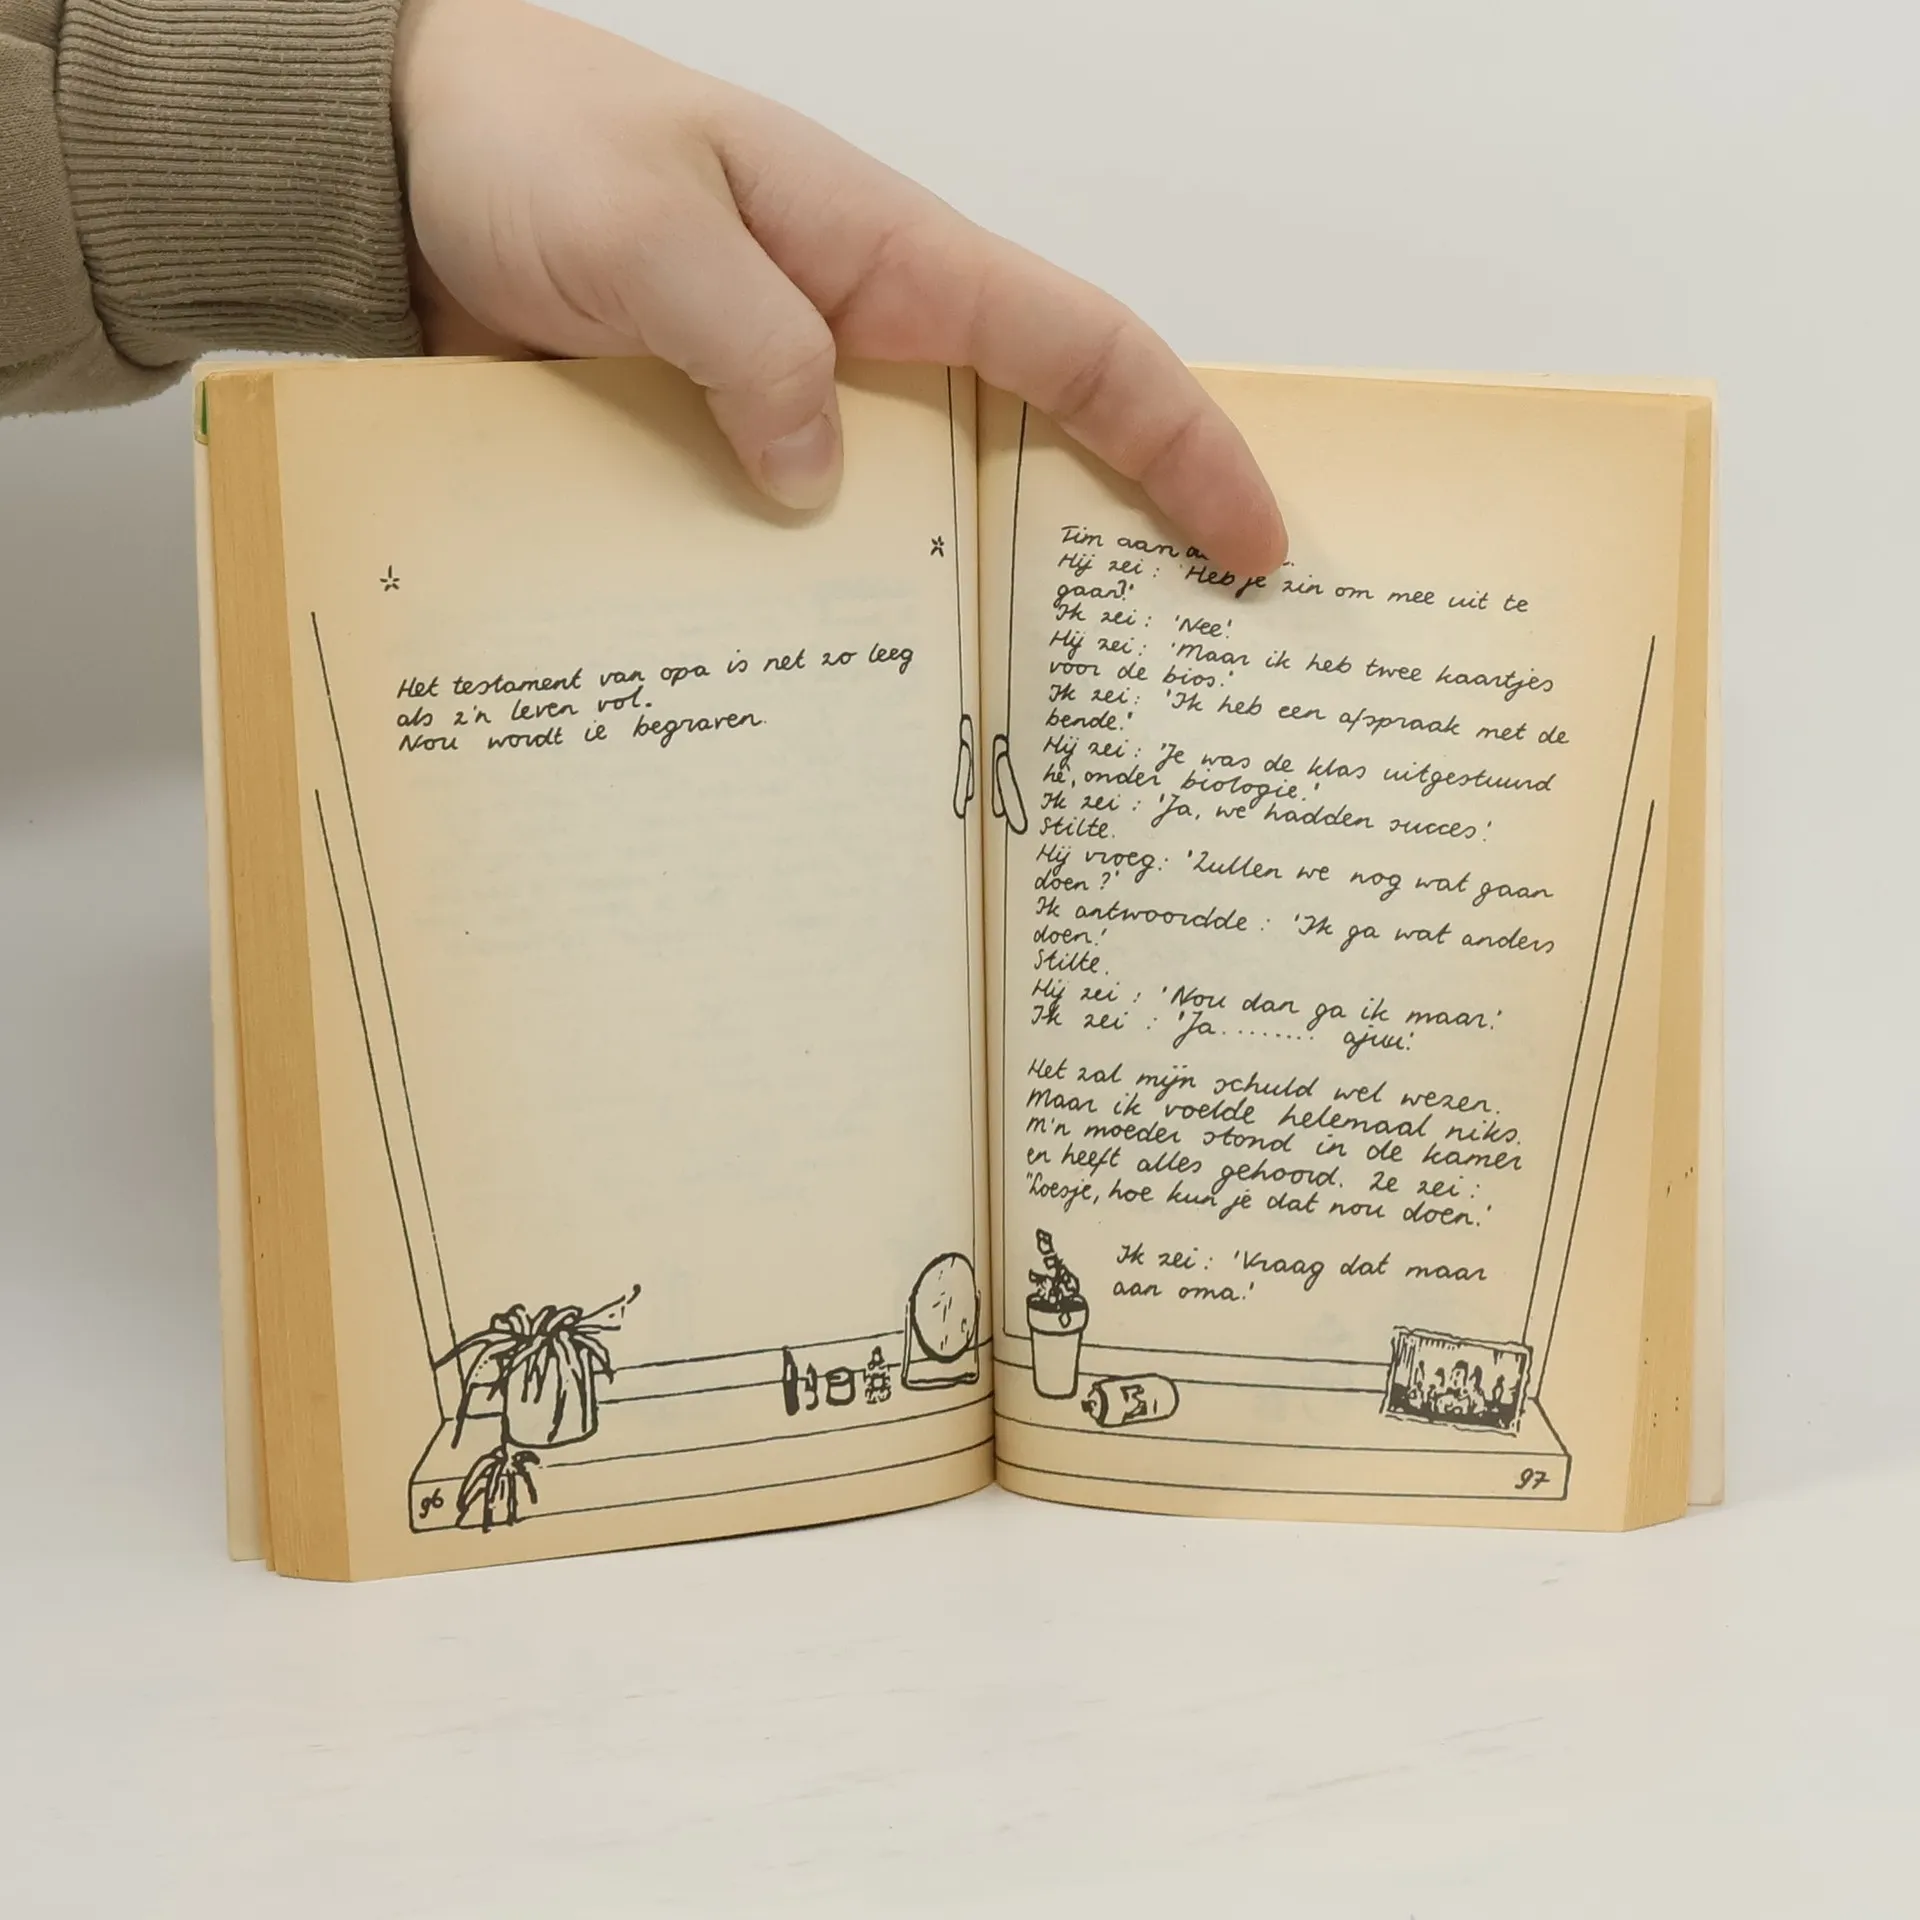 Het testament van opa is net zo leeg
als z'n leven vol.
Nou wordt ie begraven.
96
Tim aan
Hij zei : 'Heb je zin om mee uit te
gaan?'
Ik zei : 'Nee'.
Hij zei : 'Maar ik heb twee kaartjes
voor de bios.'
Ik zei : 'Ik heb een afspraak met de
bende.'
Hij zei : 'Je was de klas uitgestuurd
hè, onder biologie.'
Ik zei : 'Ja, we hadden succes'.
Stilte.
Hij vroeg : 'Zullen we nog wat gaan
doen ?'
Ik antwoordde : 'Ik ga wat anders
doen.'
Stilte.
Hij zei : 'Nou dan ga ik maar.'
Ik zei : 'Ja........ ajuu'.
Het zal mijn schuld wel wezen.
Maar ik voelde helemaal niks.
M'n moeder stond in de kamer
en heeft alles gehoord. Ze zei :
"Loesje, hoe kun je dat nou doen.'
Ik zei : 'Vraag dat maar
aan oma.'
97